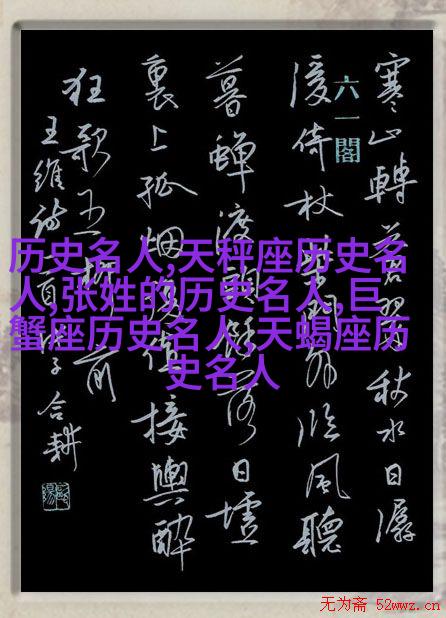 寒山轉蒼翠秋水日潺
湲倚杖柴門外臨風聽
暮蟬渡頭餘落日墟
裏上孤烟復值接輿醉
狂歌五柳前
王維詩一首
合耕
六一閣
历史名人,天秤座历史名
人,张姓的历史名人,巨
蟹座历史名人,天蝎座历
史名人
无为斋 52wwz.cn